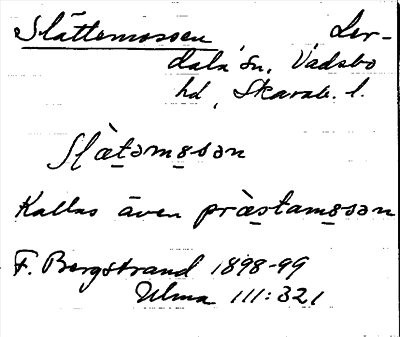 Slättemossen Ler-
dala sn, Vadsbo
hd, Skarab. l.
Slæ̀təmo̤ssən
Kallas även præ̀stamo̤ssən
F. Bergstrand 1898-99
Ulma 111:321